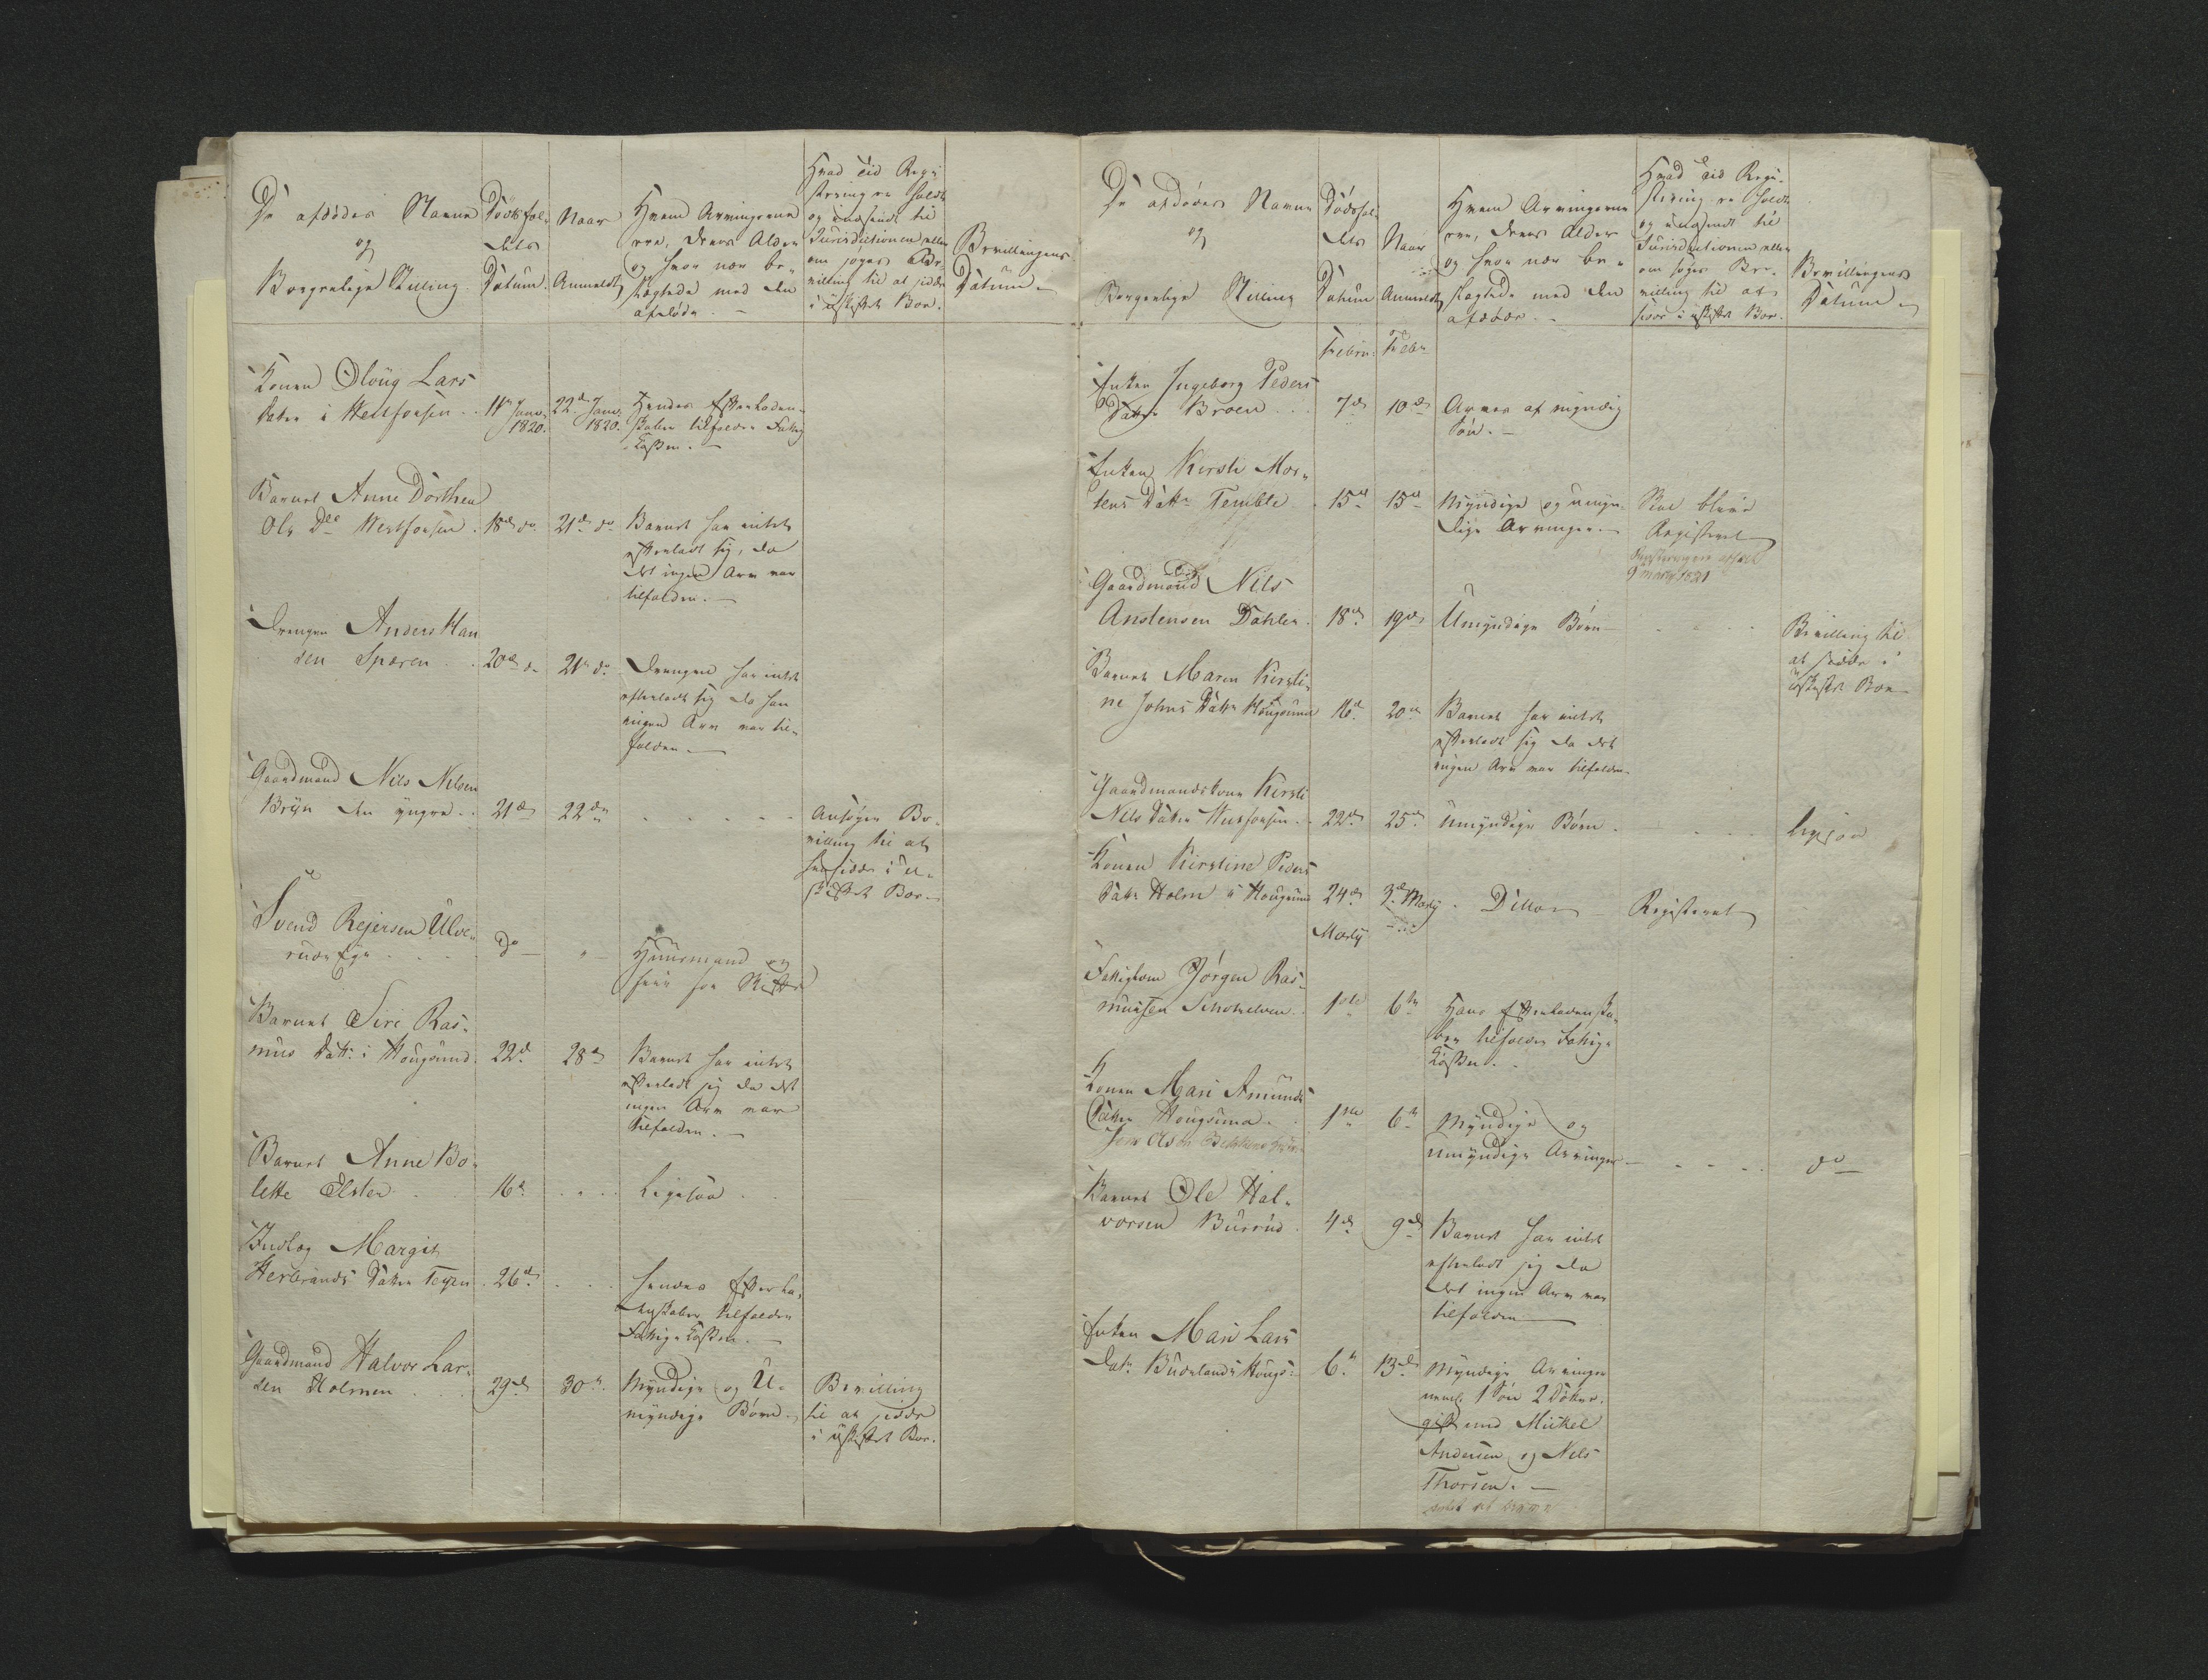 De afdødes Navne
og
Borgerlige Stilling.
Dödsfal-
dets
Datum.
Naar
Anmeldt
Hvem Arvingerne
ere, deres Alder
og hvor nær be-
slægtede med den
afdøde. –
Hvad tid Regi-
streringen holdt
og indsendt til
Jurisdictionen eller
om søges Be-
villing til at sidde
i uskiftet Boe.
Bevillingens
Datum.
Konen Oloug Lars
Datter i Westfossen .. 11te Janv. 1820. 22de Janv. 1820. Hendes Efterladen-
skaber tilfalder Fattig
Kassen. –
Barnet Anne Dorthea
Ols Dtr Westfossen . 18de do 21de do Barnet har intet
efterladt sig, da
det ingen Arv var
tilfalden. –
Drengen Anders Han
sen Speren . . 20de do 21de do Drengen har intet
efterladt sig da han
ingen Arv var til-
falden. –
Gaardmand Nils Nilsen
Bryn den yngre . . 21de 22de - - - - - Ansøger Be-
villing til at
hensidde i u-
skiftet Boe.
Svend Rejersen Ulve-
rud Ege . . . . do – " – Huusmand og
Barnet Siri Ras-
mus Datt: i Hougsund. 22de 28de Barnet har intet
efterladt sig da det
ingen Arv var
tilfalden. –
Barnet Anne Bo-
lette Elster . . 16de . . . Ligesaa . .
Indlæg Margit
Herbrands Datter Teigen . 26de . . . hendes Efterla-
denskaber tilfalder
Fattig Kassen. –
Gaardmand Halvor Lar-
sen Holmen . . . 29de 30te Myndige og U-
myndige Børn. Bevilling
til at sidde
i uskiftet Boe.
De afdødes Navne
og
Borgerlige Stilling
Dödsfal-
dets
Datum
Naar
Anmeldt
Hvem Arvingerne
ere, deres Alder
og hvor nær be-
slægtede med den
afdøde. –
Hvad tid Regi-
streringen holdt
og indsendt til
Jurisdictionen eller
om søges Be-
villing til at
sidde i uskiftet Boe.
Bevillingens
Datum
Febru. Febr.
Enken Ingeborg Peders
Datter Broen . . . 7de 10de Arves af myndig
Søn. –
Enken Kirsti Mor-
tens Datter Temble . 15de 15de Myndige og umyn-
dige Arvinger. – Skal blive
Registeret
9 Marty 1821
Gaardmand Nils
Anstensen Dahlen . 18de 19de Umyndige Børn – . . . Bevilling til
at sidde i
uskiftet Boe
Barnet Maren Kirsti-
ne Johns Datter Hougsund 16de 20de Barnet har intet
efterladt sig da det
ingen Arv var tilfalden.
Gaardmandskone Kirsti
Nils Datter Westfossen . . 22de 25de Umyndige Børn . . . ligesaa
Konen Kirstine Peders
Datter Holm i Hougsund 24de 3de Marty . Dittos – Registeret
Marty
Fattiglem Jörgen Ras-
mussen . . 1ste 6te Hans Efterladenska-
ber tilfalder Fattig-
Kassen. .
Konen Mari Amunds
Datter Hougsund . . 1ste 6te Myndige og
umyndige Arvinger – . . . do –
Barnet Ole Hal-
vorsen Buserud . 4de 9de Barnet har intet
efterladt sig da
det ingen Arv var
tilfalden –
Enken Mari Lars
Datr. Budeland Hougs: 6te 13de Myndige Arvinger
neml. 1 Søn 2 Døttre.
gift med Mickel
Andersen og Nils
Thorsen. –